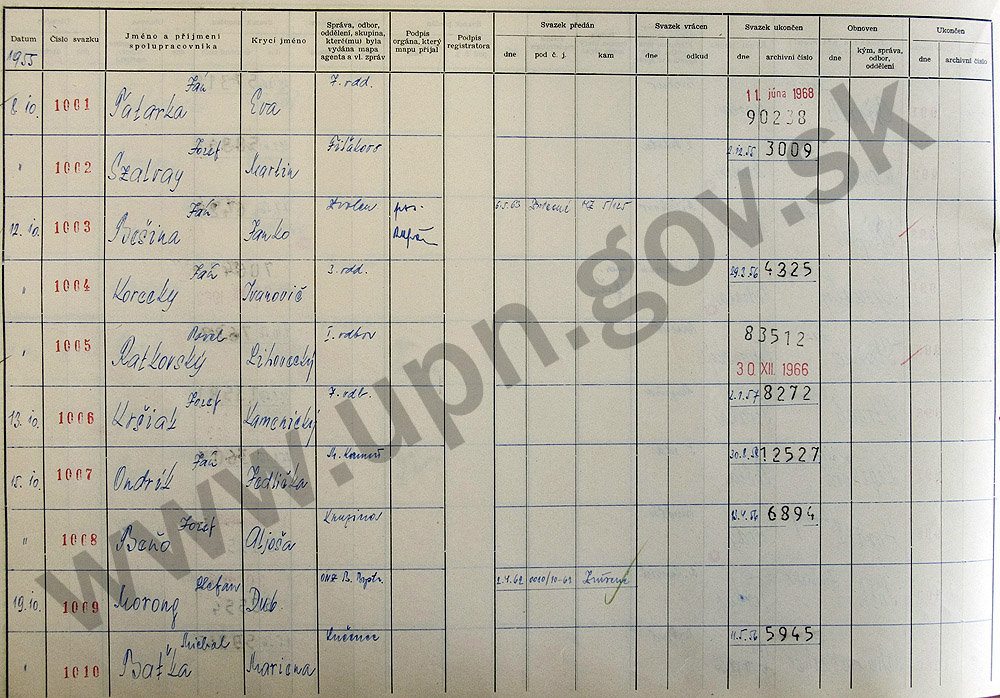 Datum
Číslo svazku
Jméno a příjmení
spolupracovníka
Krycí jméno
Správa, odbor,
oddělení, skupina,
které(mu) byla
vydána mapa
agenta a vl. zpráv
Podpis
orgána, který
mapu přijal
Podpis
registratora
Svazek předán
dne
pod č. j.
kam
Svazek vrácen
dne
odkud
Svazek ukončen
dne
archivní číslo
Obnoven
dne
kým, správa,
odbor,
oddělení
Ukončen
dne
archivní číslo
1955
8.10. 1001 Paťarka Ján Eva 7. odd. 11. júna 1968
90238
" 1002 Szalvay Jozef Martin Fiľakovo 2.12.55 3009
12.10. 1003 Bečina Ján Janko Zvolen 6.5.63 Brezno
" 1004 Korecky Ján Ivanovič 3. odd. 29.2.56 4325
" 1005 Ratkovský Pavel Lihovecký I. odbor 83512
30. XII. 1966
13.10. 1006 Kršiak Jozef Kamenický 7. odb. 2.1.57 8272
15.10. 1007 Ondrík Ján Jedlička 12527
" 1008 Beňo Jozef Aljoša Krupina 6894
19.10. 1009 Morong Štefan Dub 2.4.62 0010/10-62
" 1010 Baťka Michal Mariena Lučenec 11.5.56 5945
www.upn.gov.sk